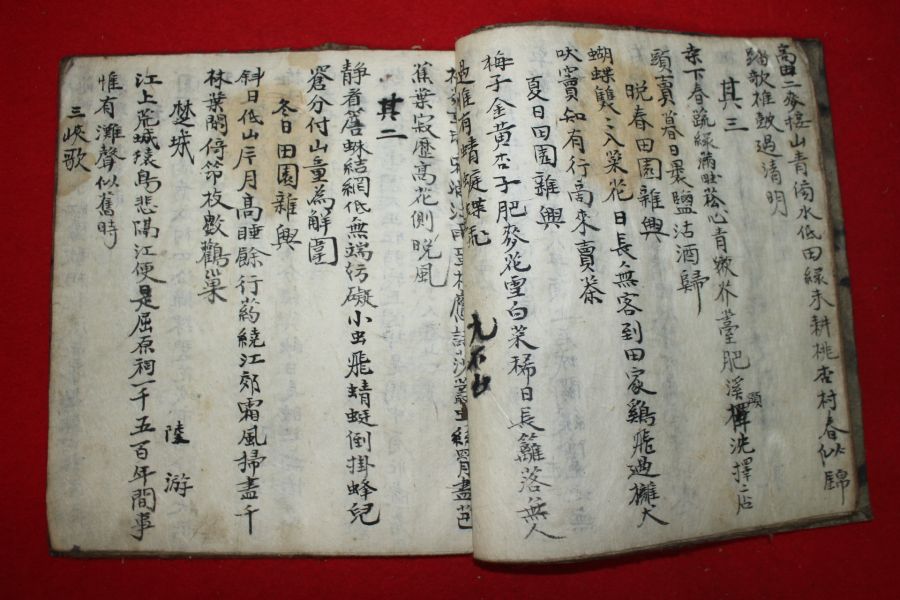 高田二麥接山青傍水低田綠未耕桃杏村春似錦
踏歌椎鼓過清明
其三
桒下春蔬綠滿畦菘心青嫩芥薹肥溪頭擇洗擇店
頭賣日鹽沽酒歸
晩春田園雜興
蝴蝶雙〻入菜花日長無客到田家鷄飛過籬犬
吠竇知有行商來賣茶
夏日田園雜興
梅子金黃杏子肥麥花雪白菜稀日長籬落無人
過惟有蜻蜓蝶飛
蕉葉寂歷高花側晩風
其二
靜看簷蛛結網低無端妨礙小虫飛蜻蜓倒掛蜂兒
窘分付山童為解圍
冬日田園雜興
斜日低山片月高睡餘行藥繞江郊霜風掃盡千
林葉閑倚筇枝數鸛巢
楚城 陸游
江上荒城猿鳥悲隔江便是屈原祠一千五百年間事
惟有灘聲似舊時
三峽歌